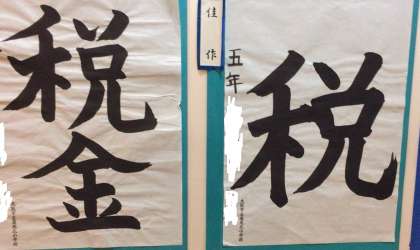 佳作
五年
税
税金